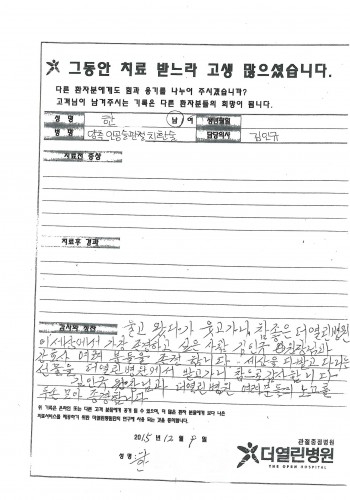 그동안 치료 받느라 고생 많으셨습니다.
다른 환자분에게도 힘과 용기를 나누어 주시겠습니까?
고객님이 남겨주시는 기록은 다른 환자분들의 희망이 됩니다.
성 명 한 남 여 생년월일
병 명 양쪽 인공슬관절 치환술 담당의사 김인규
치료전 증상
치료후 경과
감사와 칭찬
울고 왔다가 웃고가님 참좋은 더열린병원
이세상에서 가장 존경하고 싶은 사람 김인규 원장님과
간호사 여러 분들을 추천 합니다. 세상을 다받고 다가는
선물을 더열린병원에서 받고가니 참으로감사합니다
김인규 원장님과 더열린병원 여러분들의 노고를
두손 모아 존경합니다
위 기록은 온라인 또는 다른 고객 분들에게 공개 될 수 있으며, 더 많은 환자 분들에게 보다 나은
의료서비스를 제공하기 위한 더열린병원의 연구에 사용 되는 것을 동의합니다.
2015년 12월 9일
성명 : 한
관절중점병원
더열린병원
THE OPEN HOSPITAL